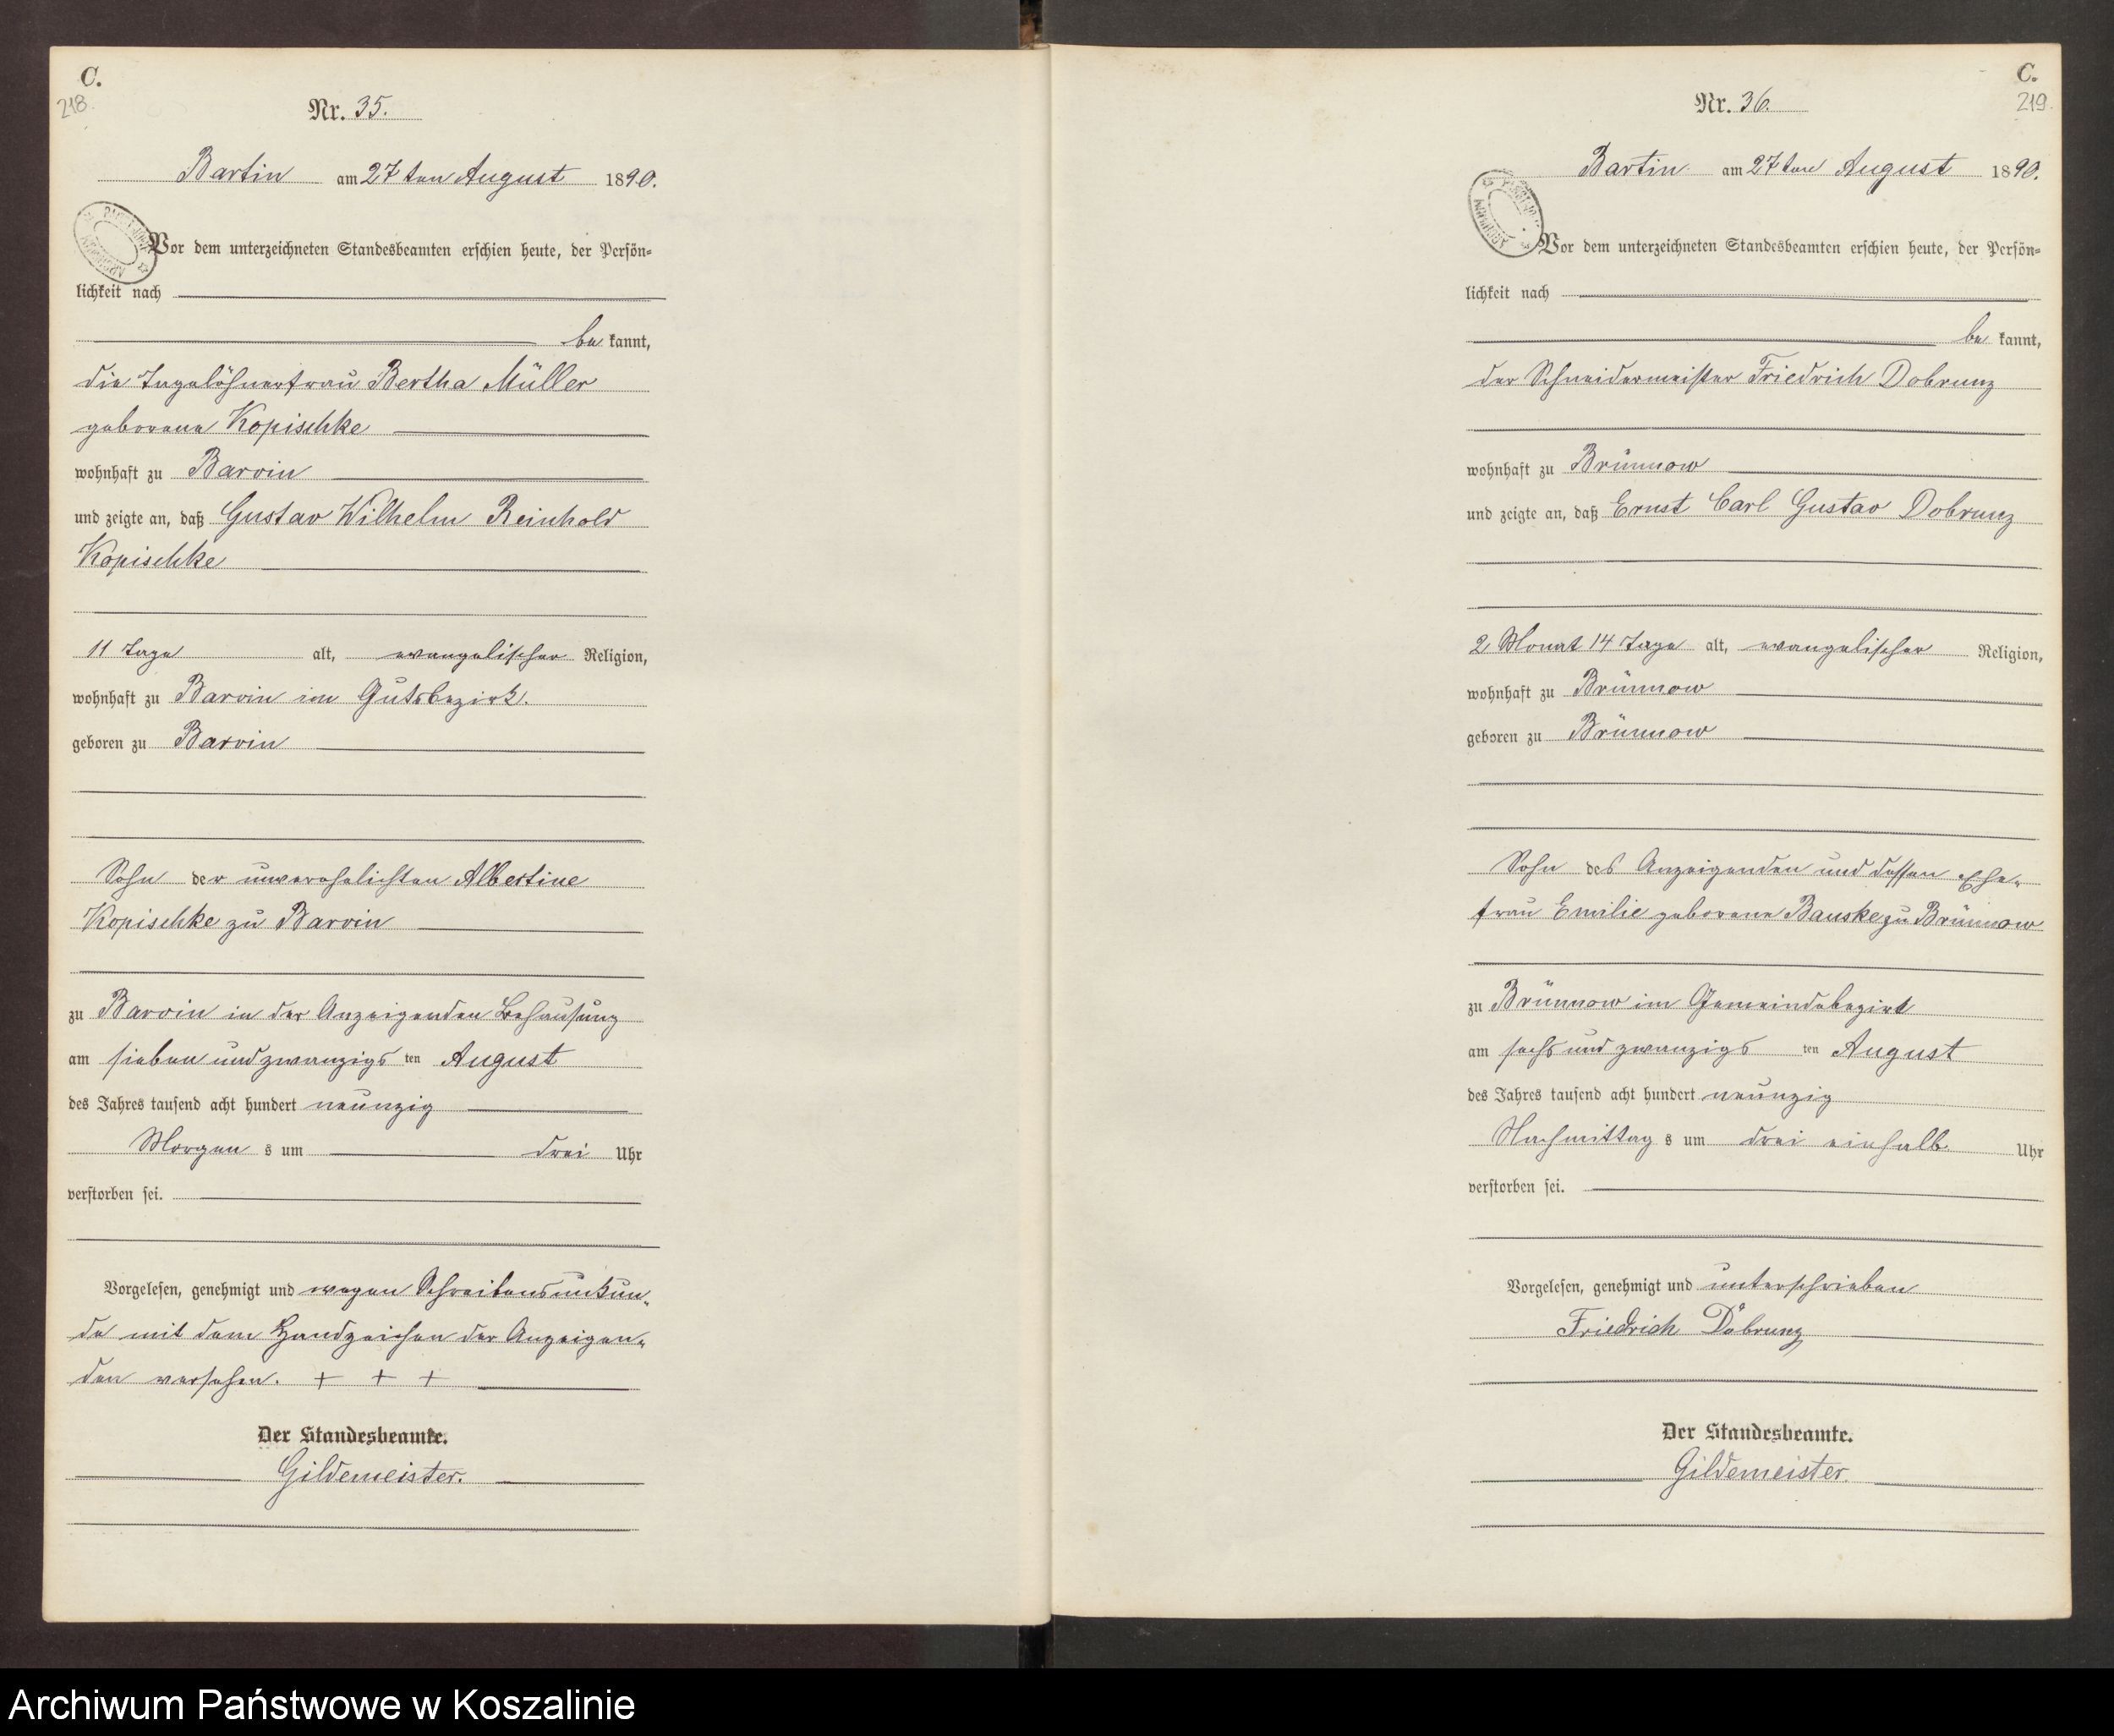 C.
218.
Nr. 35.
Bartin am 27ten August 1890.
Vor dem unterzeichneten Standesbeamten erschien heute, der Persön=
lichkeit nach
be kannt,
die Tagelöhnerfrau Bertha Müller
geborene Kopischke
wohnhaft zu Barvin
und zeigte an, daß Gustav Wilhelm Reinhold
Kopischke
11 Tage alt, evangelischer Religion,
wohnhaft zu Barvin im Gutsbezirk.
geboren zu Barvin
Sohn der unverehelichten Albertine
Kopischke zu Barvin
zu Barvin in der Anzeigenden Behausung
am sieben und zwanzigs ten August
des Jahres tausend acht hundert neunzig
Morgen s um drei Uhr
verstorben sei.
Vorgelesen, genehmigt und wegen Schreibensunkun=
de mit dem Handzeichen der Anzeigen=
den versehen. + + +
Der Standesbeamte.
Gildemeister.
C.
219.
Nr. 36.
Bartin am 27ten August 1890.
Vor dem unterzeichneten Standesbeamten erschien heute, der Persön=
lichkeit nach
be kannt,
der Schneidermeister Friedrich Dobrunz
wohnhaft zu Brünnow
und zeigte an, daß Ernst Carl Gustav Dobrunz
2 Monat 14 Tage alt, evangelischer Religion,
wohnhaft zu Brünnow
geboren zu Brünnow
Sohn des Anzeigenden und dessen Ehe=
frau Emilie geborene Bauske zu Brünnow
zu Brünnow im Gemeindebezirk
am sechs und zwanzigs ten August
des Jahres tausend acht hundert neunzig
Nachmittag s um drei einhalb Uhr
verstorben sei.
Vorgelesen, genehmigt und unterschrieben
Friedrich Dobrunz
Der Standesbeamte.
Gildemeister.
Archiwum Państwowe w Koszalinie